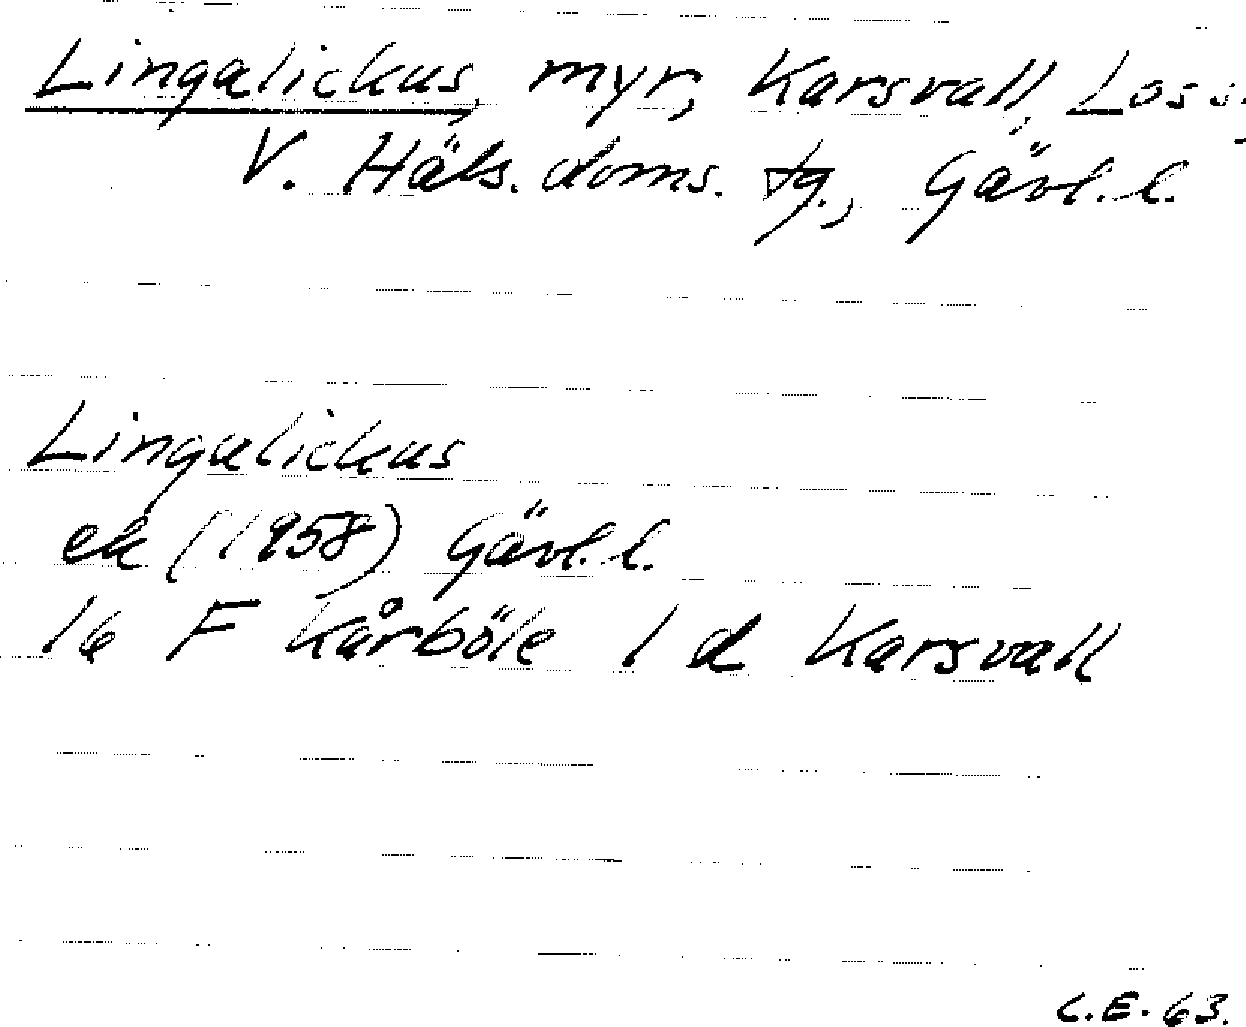 Lingalickus, myr, Karsvall, Los s.,
V. Häls. doms. tg., Gävl. l.
Lingalickus
ek (1958) Gävl. l.
16 F Kårböle 1 d Karsvall
C.E. 63.